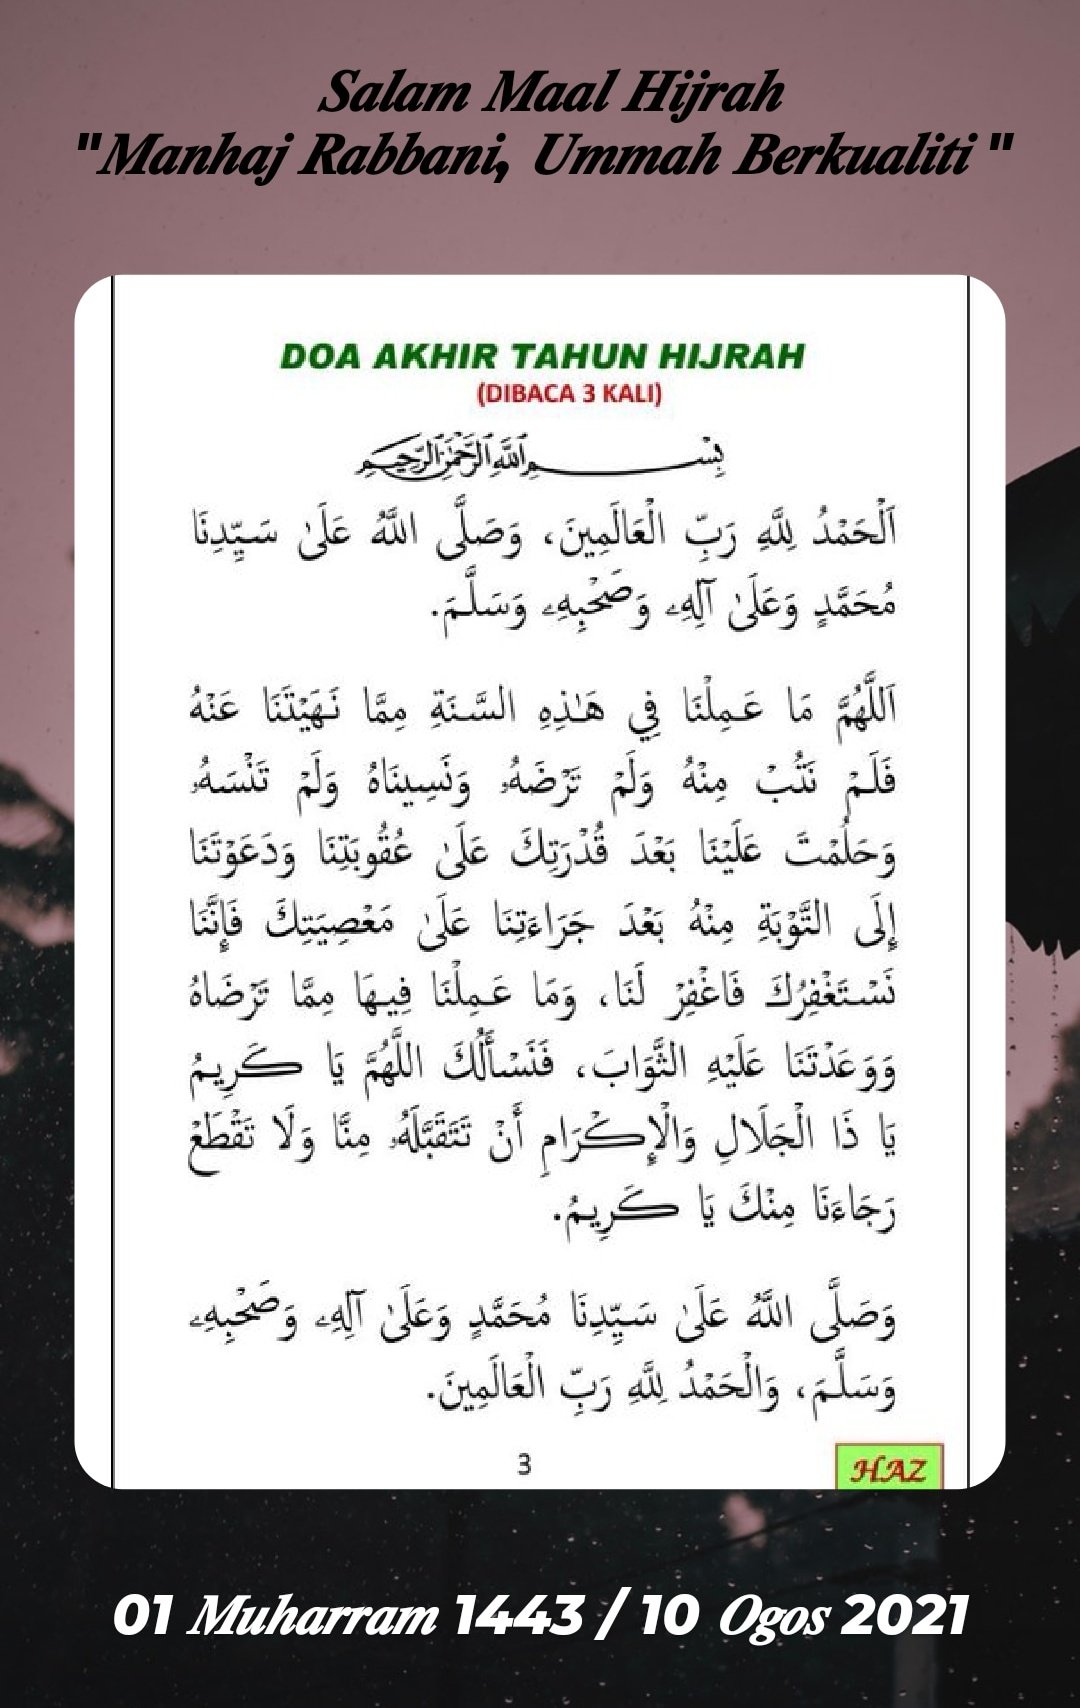 Salam Maal Hijrah
"Manhaj Rabbani, Ummah Berkualiti"
DOA AKHIR TAHUN HIJRAH
(DIBACA 3 KALI)
بِسْمِ اللَّهِ الرَّحْمَٰنِ الرَّحِيمِ
اَلْحَمْدُ لِلَّهِ رَبِّ الْعَالَمِينَ، وَصَلَّى اللَّهُ عَلَىٰ سَيِّدِنَا
مُحَمَّدٍ وَعَلَىٰ آلِهِۦ وَصَحْبِهِۦ وَسَلَّمَ.
اَللَّهُمَّ مَا عَمِلْنَا فِي هَـٰذِهِ السَّنَةِ مِمَّا نَهَيْتَنَا عَنْهُ
فَلَمْ نَتُبْ مِنْهُ وَلَمْ تَرْضَهُۥ وَنَسِينَاهُ وَلَمْ تَنْسَهُۥ
وَحَلُمْتَ عَلَيْنَا بَعْدَ قُدْرَتِكَ عَلَىٰ عُقُوبَتِنَا وَدَعَوْتَنَا
إِلَى التَّوْبَةِ مِنْهُ بَعْدَ جَرَاءَتِنَا عَلَىٰ مَعْصِيَتِكَ فَإِنَّنَا
نَسْتَغْفِرُكَ فَاغْفِرْ لَنَا، وَمَا عَمِلْنَا فِيهَا مِمَّا تَرْضَاهُ
وَوَعَدْتَنَا عَلَيْهِ الثَّوَابَ، فَنَسْأَلُكَ اللَّهُمَّ يَا كَرِيمُ
يَا ذَا الْجَلَالِ وَالْإِكْرَامِ أَنْ تَتَقَبَّلَهُۥ مِنَّا وَلَا تَقْطَعْ
رَجَاءَنَا مِنْكَ يَا كَرِيمُ.
وَصَلَّى اللَّهُ عَلَىٰ سَيِّدِنَا مُحَمَّدٍ وَعَلَىٰ آلِهِۦ وَصَحْبِهِۦ
وَسَلَّمَ، وَالْحَمْدُ لِلَّهِ رَبِّ الْعَالَمِينَ.
3
HAZ
01 Muharram 1443 / 10 Ogos 2021